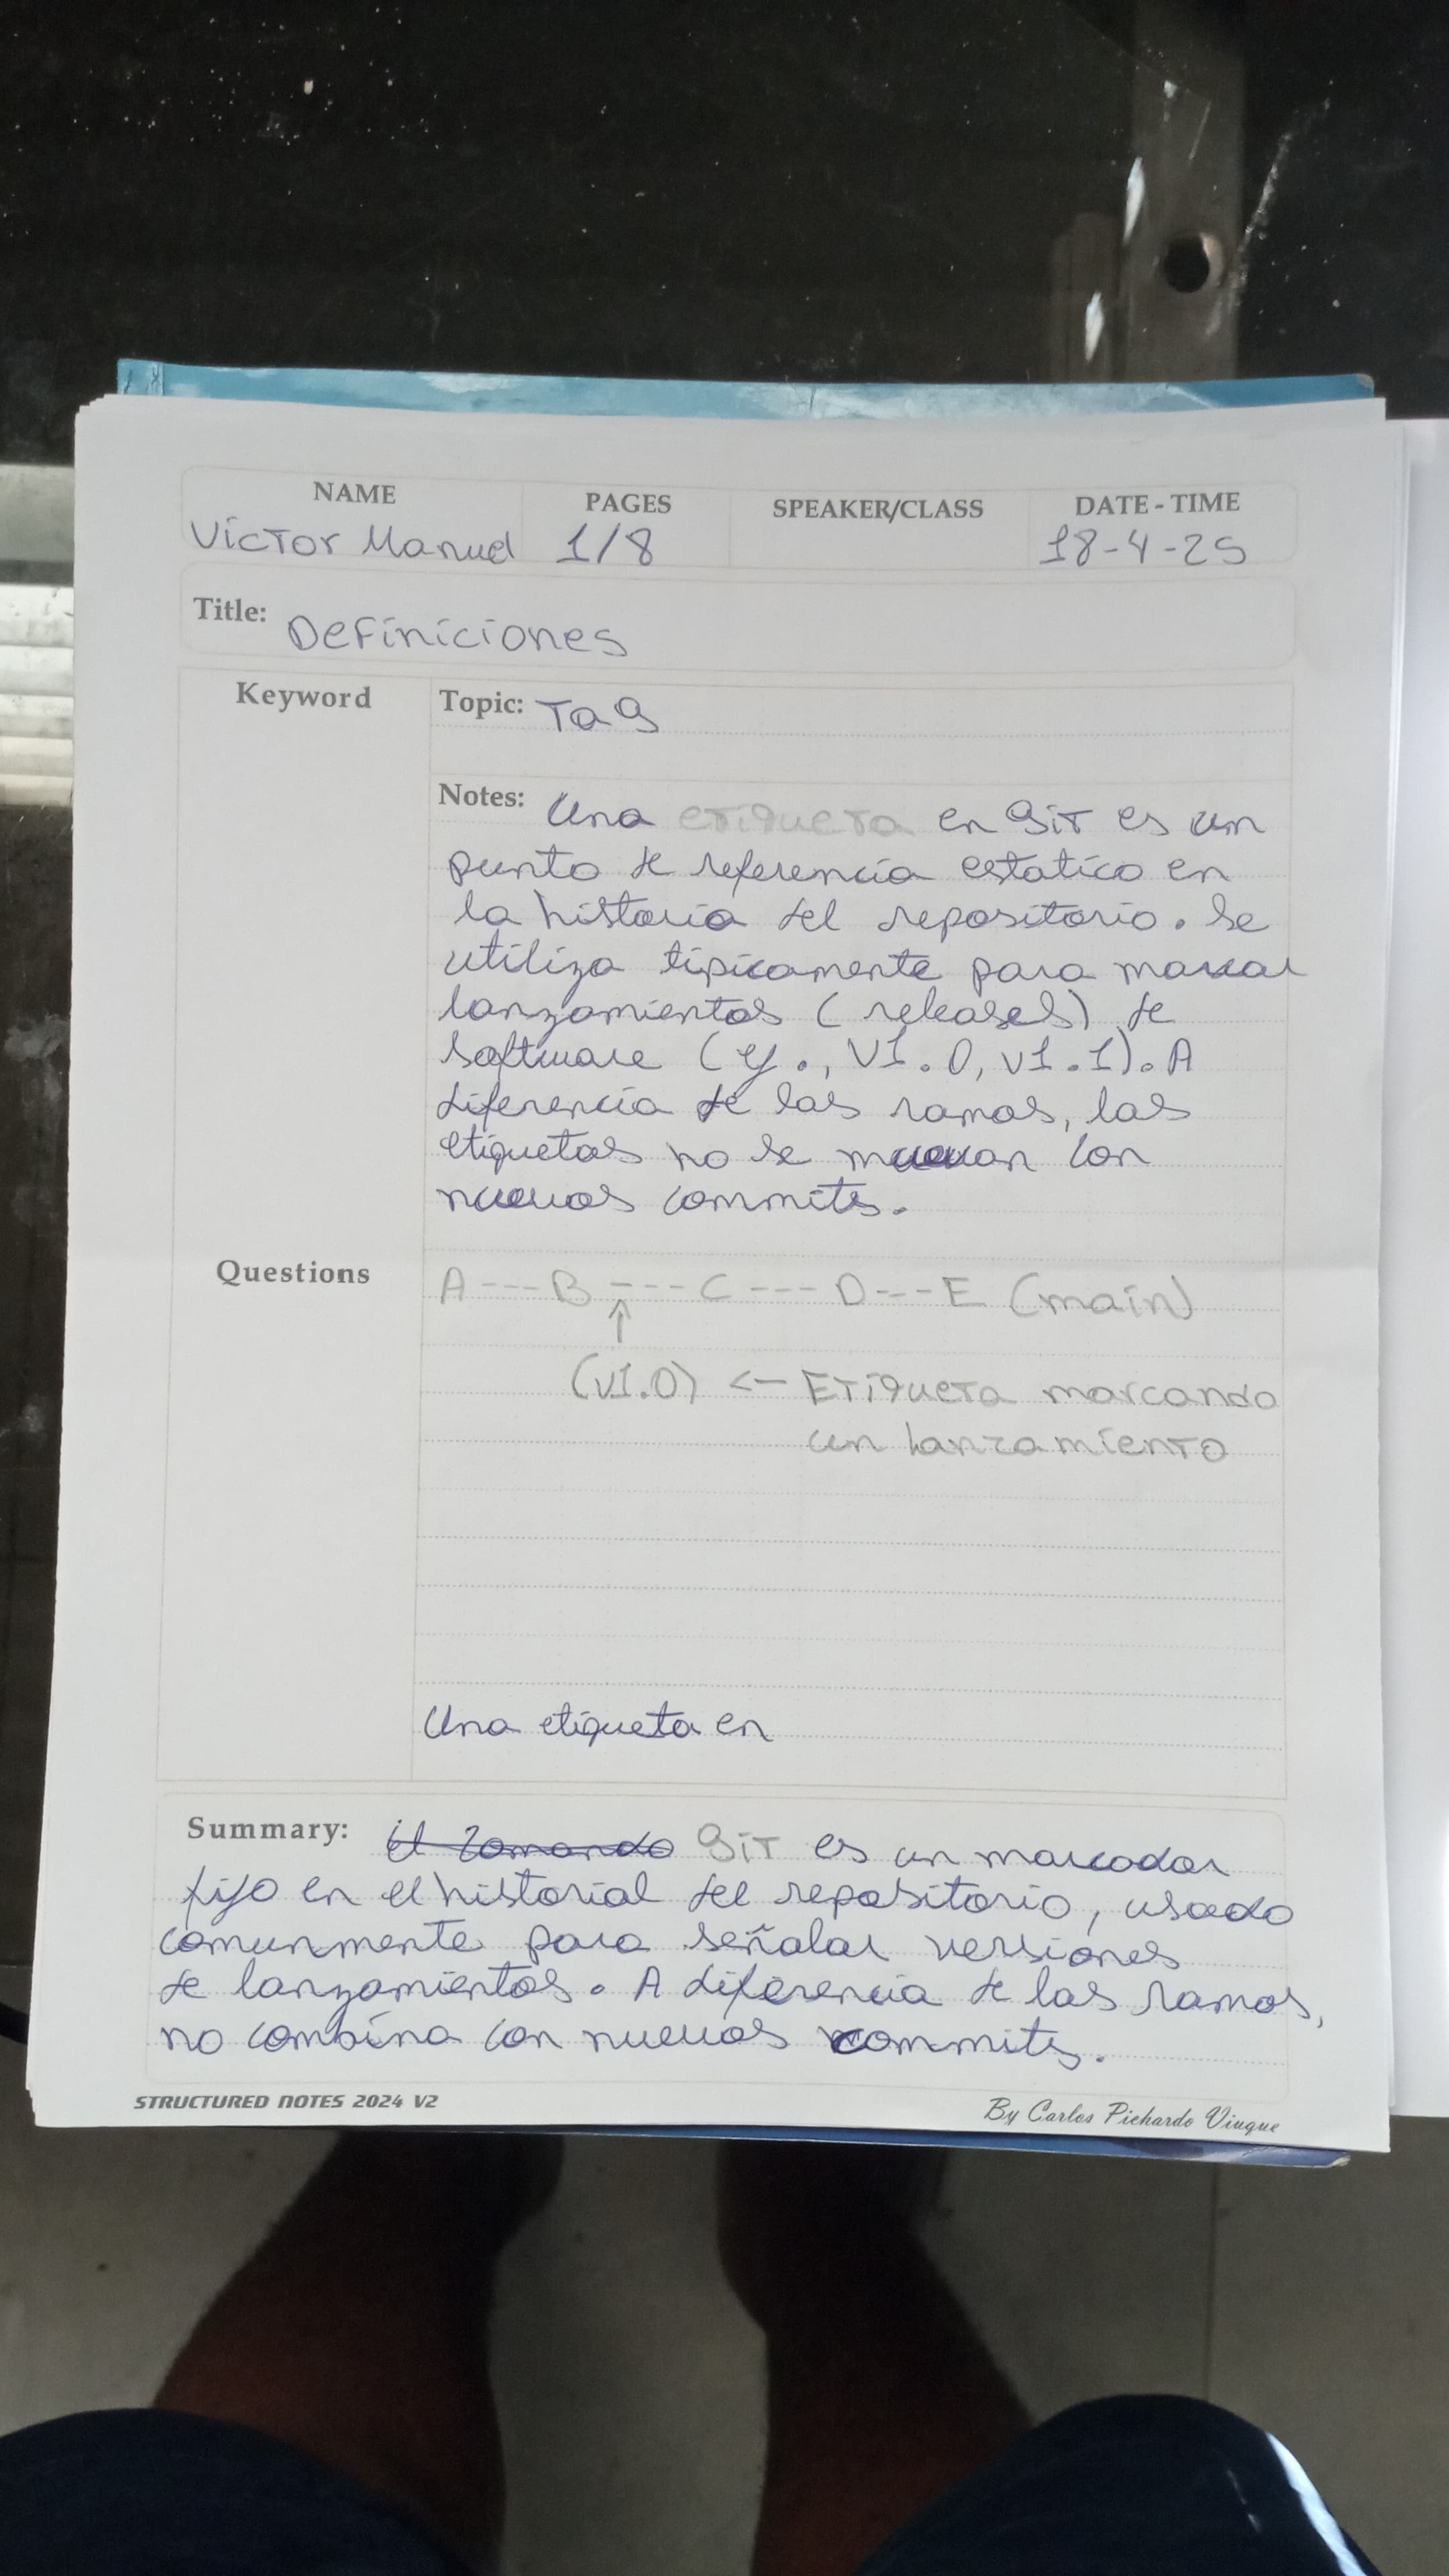 NAME PAGES SPEAKER/CLASS DATE - TIME
Víctor Manuel 1/8 18-4-25
Title: Definiciones
Keyword
Topic: Tag
Notes: Una etiqueta en Git es un
punto de referencia estatico en
la historia del repositorio. Se
utiliza tipicamente para marcar
lanzamientos (releases) de
software (ej., v1.0, v1.1). A
diferencia de las ramas, las
etiquetas no se muevan con
nuevos commits.
Questions
A---B----C----D---E (main)
↑
(v1.0) <- Etiqueta marcando
un lanzamiento
Una etiqueta en
Summary: El comando Git es un marcador
fijo en el historial del repositorio, usado
comunmente para señalar versiones
de lanzamientos. A diferencia de las ramas,
no combina con nuevos commits.
STRUCTURED NOTES 2024 V2
By Carlos Pichardo Viuque